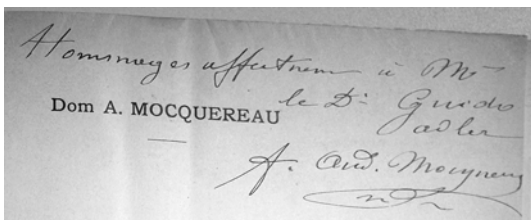 Hommages affectueux à Mr
le Dr Guido
Adler
Dom A. MOCQUEREAU
A. And. Mocquereau